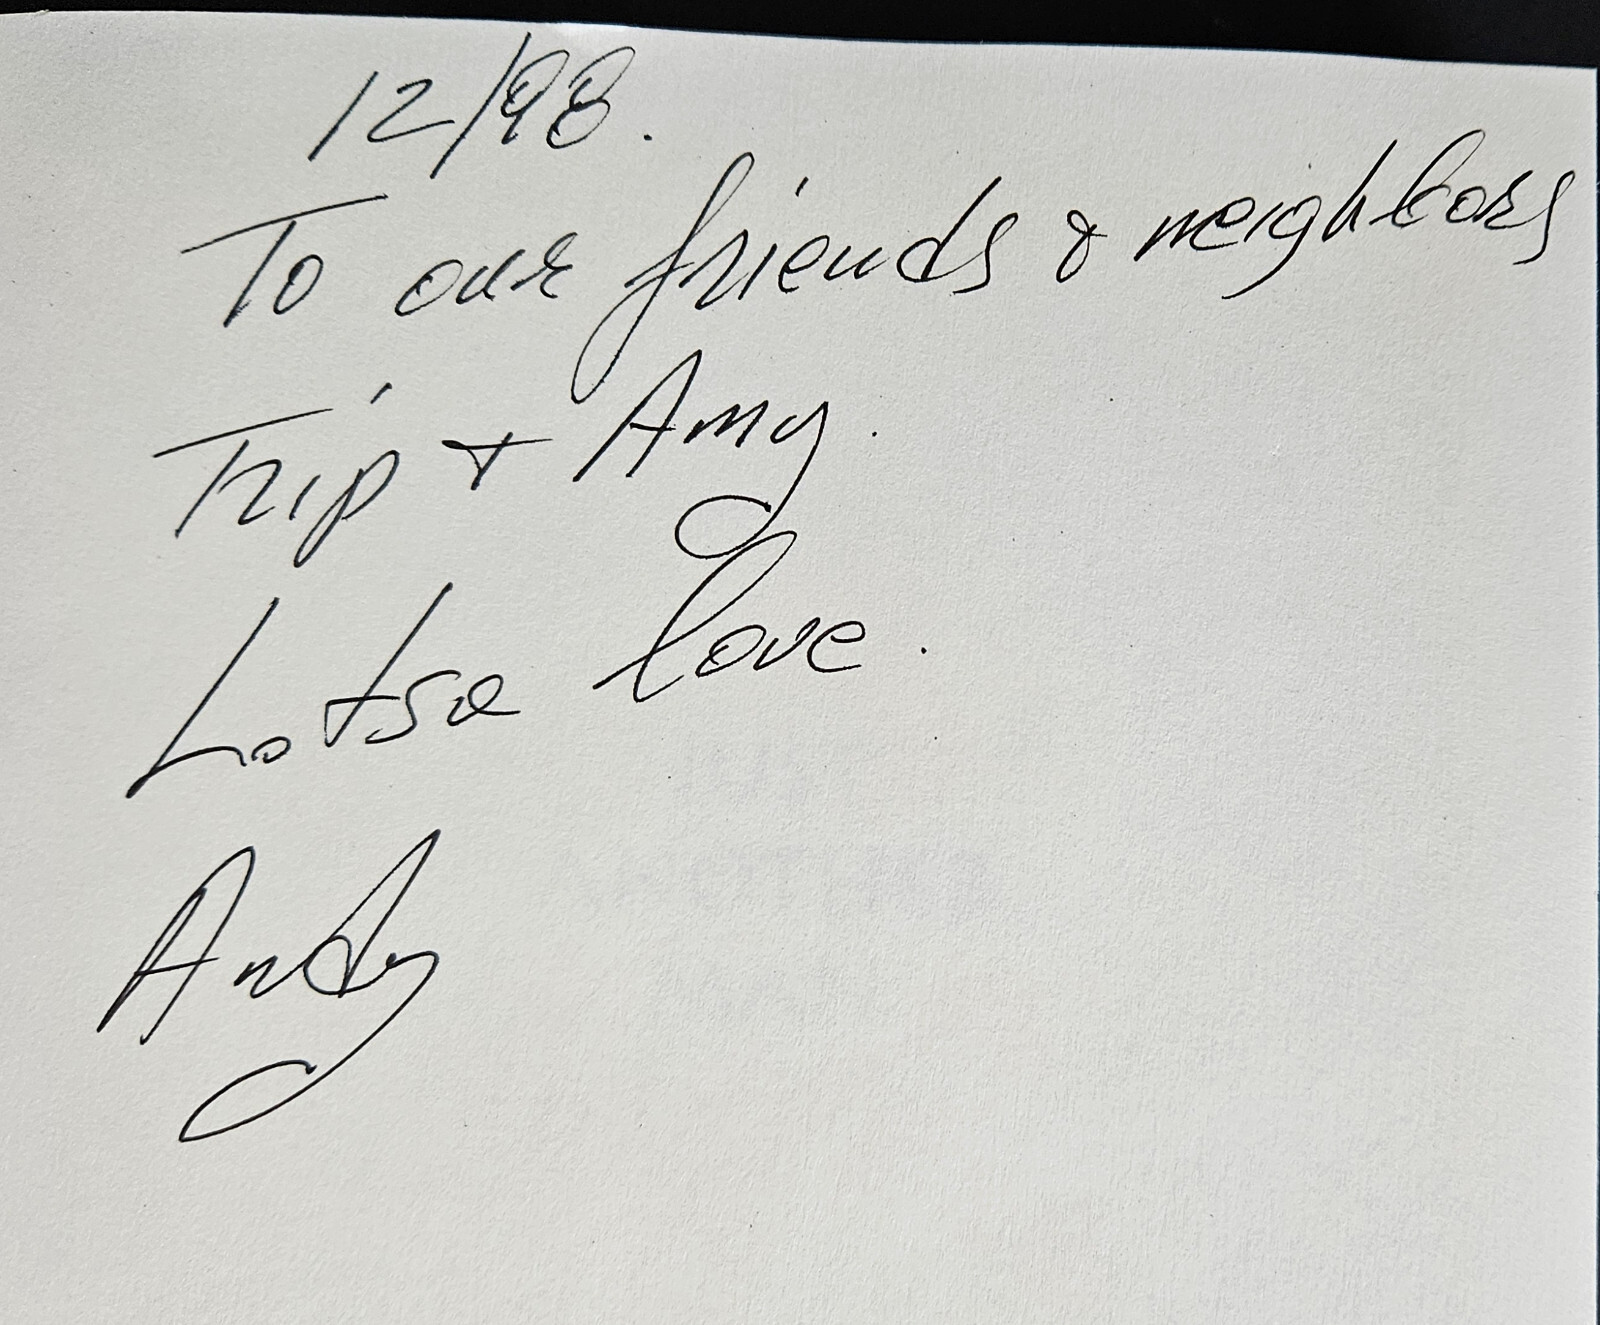 12/98.
To our friends & neighbors
Trip + Amy.
Lotsa love.
Andy